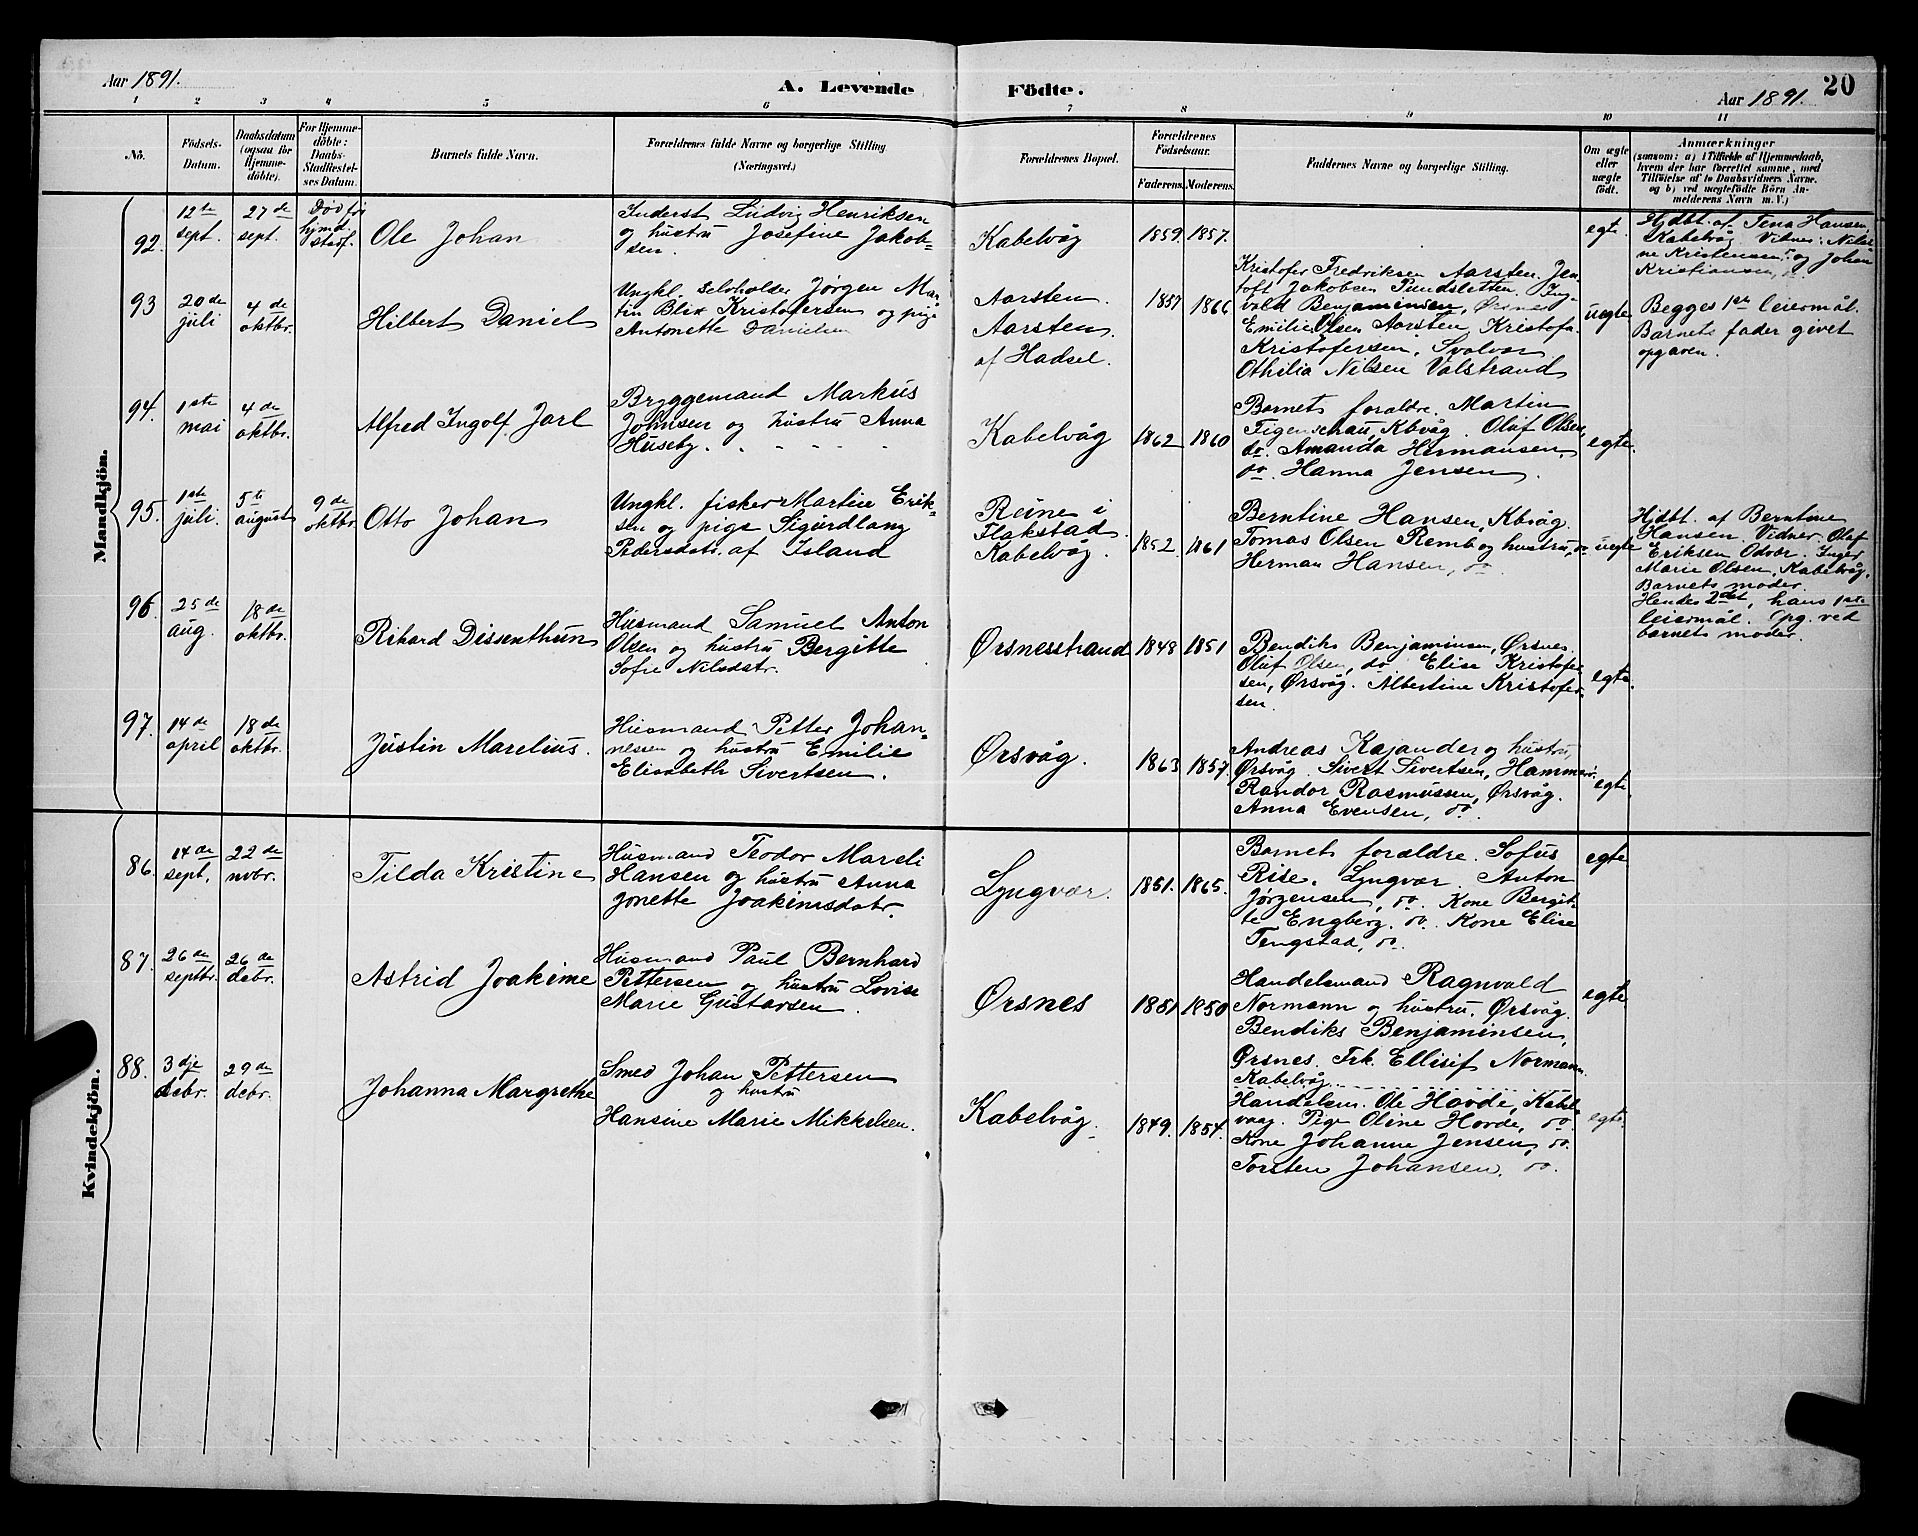 Aar 1891.
A. Levende
Födte.
Aar 1891.
20
1 2 3 4 5 6 7 8 9 10 11
No.
Födsels-
Datum.
Daabsdatum
(ogsaa for
Hjemme-
döbte).
For Hjemme-
döbte:
Daabs-
Stadfæstel-
ses Datum.
Barnets fulde Navn.
Forældrenes fulde Navne og borgerlige Stilling
(Næringsvei.)
Forældrenes Bopæl.
Forældrenes
Födselsaar.
Faderens. Moderens.
Faddernes Navne og borgerlige Stilling.
Om ægte
eller
uægte
født.
Anmærkninger
(saasom: a) i Tilfælde af Hjemmedaab,
hvem der har forrettet samme, med
Tilföielse af to Daabsvidners Navne,
og b) ved uægtefödte Börn An-
melderens Navn m. V.)
Mandkjön.
92.
12te
sept.
27de
sept.
Död før
hjmd.
stadf.
Ole Johan
Inderst Ludvig Henriksen
og hustru Josefine Jakob-
sen.
Kabelvåg
1859. 1857.
egte.
Hjdbt. af Tina Hansen
Kabelvåg. Vitner: Nilsi-
ne Kristensen og Johan
Kristiansen, do.
93
20de
juli
4de
oktbr.
Hilbert Daniel
Ungkl. selvholder Jørgen Mar-
tin Blix Kristofersen og pige
Antonette Danielsen
Aarsten.
Aarsten
af Hadsel.
1857 1866
Kristofer Fredriksen Aarsten. Jen-
toft Jakobsen Pundsletten. Ing-
vald Benjaminsen, Ørsnes
Emilie Olsen Aarsten, Kristofer
Kristofersen, Svolvær
Othilia Nilsen Valstrand
uegte
Begges 1ste leiermål.
Barnets fader givet
opgaven.
94.
1ste
mai
4de
oktbr.
Alfred Ingolf Jarl
Bryggemand Markus
Johnsen og hustru Anna
Huseby.
Kabelvåg
1862 1860
Barnets forældre. Martin
Figenschau, Kbvåg. Olaf Olsen,
do. Amanda Hermansen,
do Hanna Jensen.
egte.
95.
1ste
juli.
5te
august
9de
oktbr.
Otto Johan
Ungkl. fisker Martin Erik-
sen og pige Sigurdlang
Pedersdatr. af Island
Reine i
Flakstad.
Kabelvåg.
1852. 1861
Berntine Hansen, Kbvåg.
Tomas Olsen Remb og hustru, do
Herman Hansen, do
uegte
Hjdbt. af Berntine
Hansen. Vidner Olaf
Eriksen Odvær. Inger
Marie Olsen, Kabelvåg.
Barnets moder.
Hendes 2det, hans 1ste
leiermål. Opg. ved
barnets moder.
96.
25de
aug.
18de
oktbr.
Rikard Dissenthun
Husmand Samuel Anton
Olsen og hustru Bergitte
Sofie Nilsdatr.
Ørsnesstrand
1848 1851
Bendiks Benjaminsen, Ørsnes.
Oluf Olsen, do Elise Kristofer-
sen, Ørsvåg. Albertine Kristofer-
sen.
egte.
97.
14de
april
18de
oktbr.
Justin Marelius.
Husmand Petter Johan-
nesen og hustru Emilie
Elisabeth Sivertsen.
Ørsvåg.
1863 1857.
Andreas Kajander og hustru,
Ørsvåg. Sivert Sivertsen, Hammerö.
Randor Rasmussen, Ørsvåg.
Anna Evensen, do.
egte.
Kvindekjön.
86.
14de
sept.
22de
novbr.
Tilda Kristine
Husmand Teodor Mareli
Hansen og hustru Anna
Jonette Joakimsdatr.
Lyngvær.
1851. 1865.
Barnets forældre. Sofus
Rise, Lyngvær. Anton
Jørgensen, do. Kone Bergit-
te Engberg, do. Kone Elise
Tengstad, do.
egte
87.
26de
septbr.
26de
debr.
Astrid Joakime
Husmand Paul Bernhard
Pettersen og hustru Lovise
Marie Gustavsen.
Ørsnes
1851 1850
Handelsmand Ragnvald
Normann og hustru, Ørsvåg.
Bendiks Benjaminsen,
Ørsnes. Frk. Ellisif Normann
Kabelvåg.
egte
88.
3dje
debr.
29de
debr.
Johanna Margrethe
Smed Johan Pettersen
og hustru
Hansine Marie Mikkelsen.
Kabelvåg.
1849. 1854.
Handelsm. Ole Hovde, Kabel-
vaag. Pige Oline Hovde, do
Kone Johanne Jensen, do.
Torsten Johansen, do.
egte.